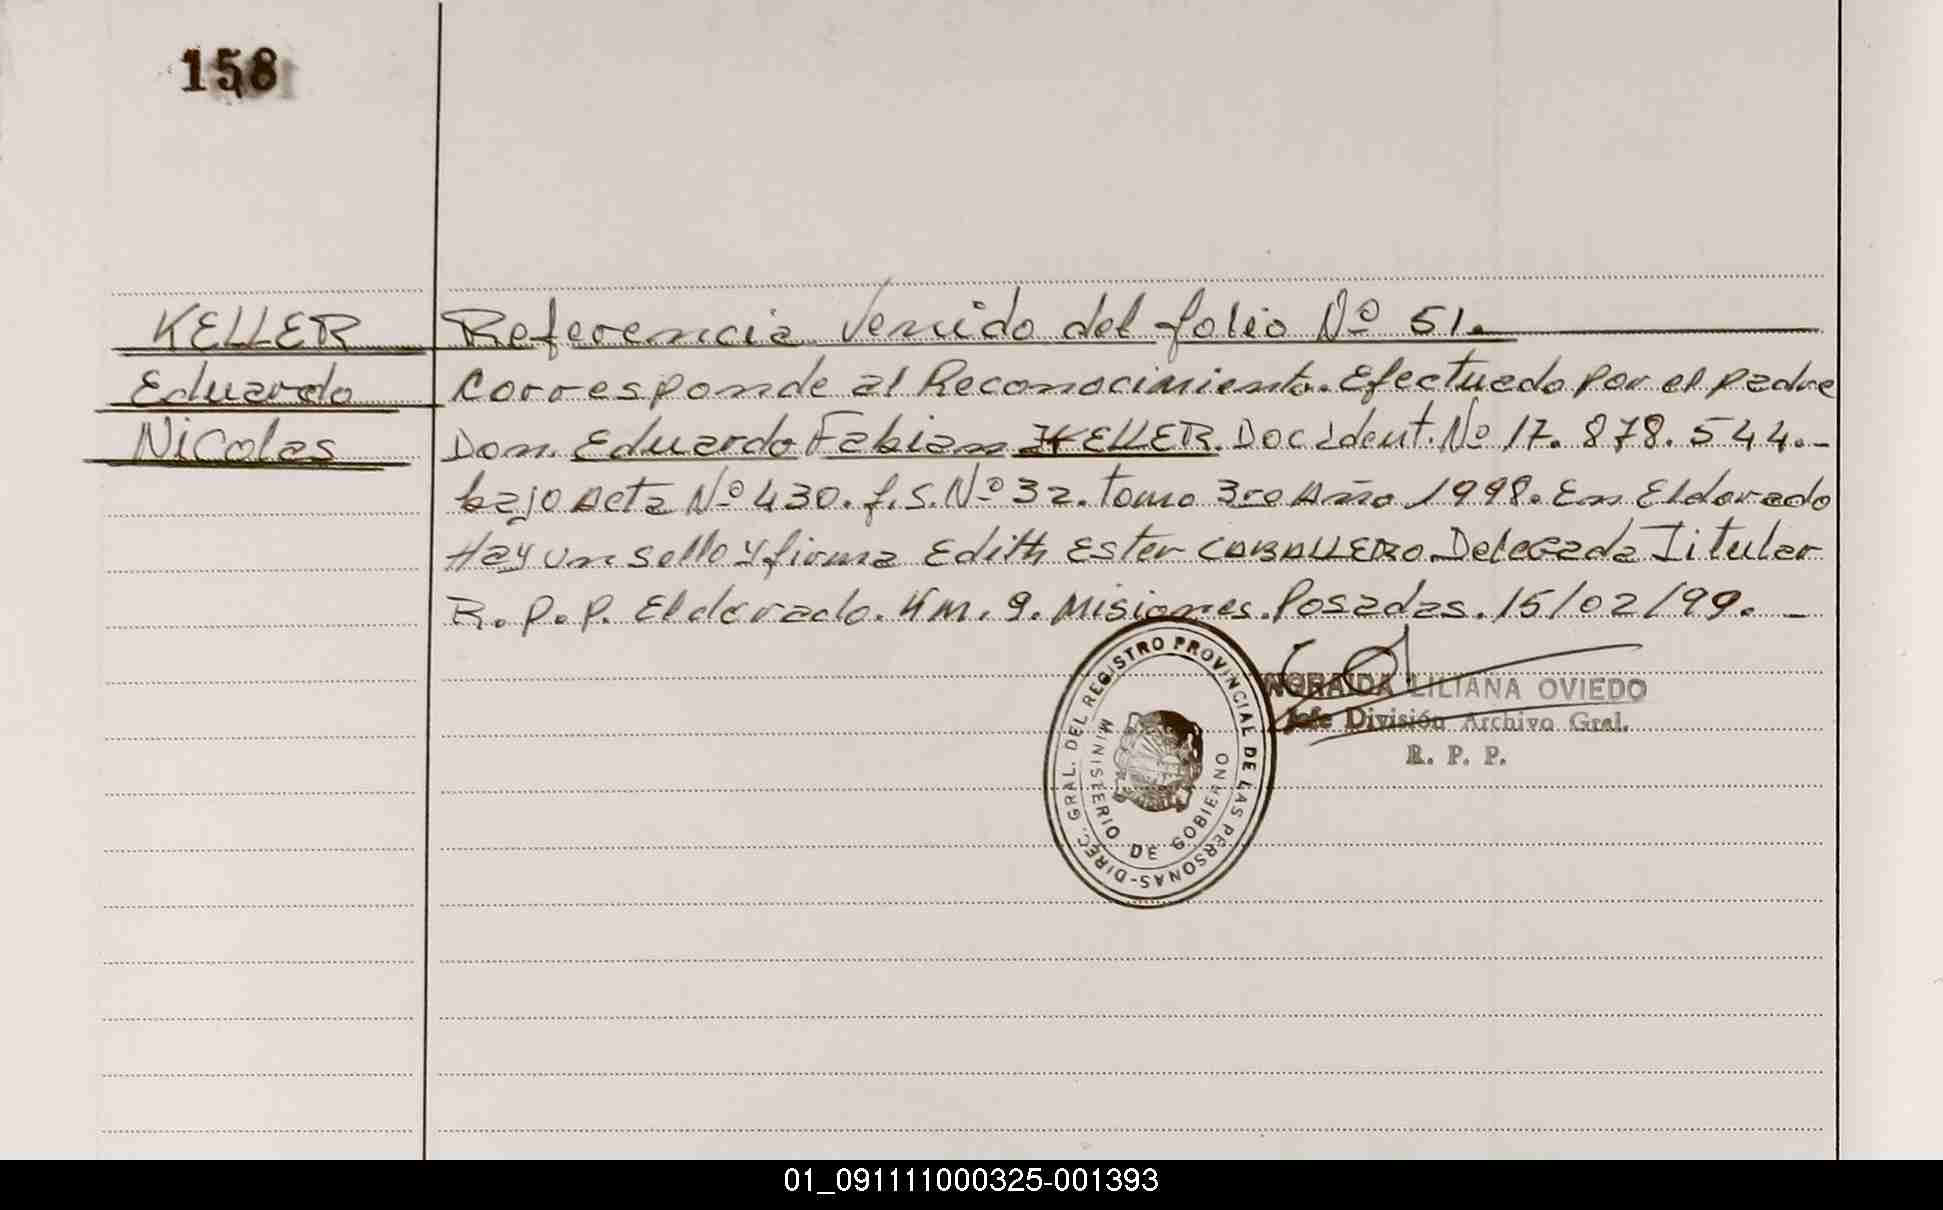 158
KELLER
Eduardo
Nicolas
Referencia Venido del folio Nº 51.
Corresponde al Reconocimiento. Efectuado por el padre
Don. Eduardo Fabian KELLER. Doc Ident. Nº 17.878.544.-
bajo Acta Nº 430. f.s. Nº 32. Tomo 3ro Año 1998. En Eldorado
Hay un sello y firma Edith Ester CABALLERO. Delegada Titular
R.P.P. Eldorado. Km. 9. Misiones. Posadas. 15/02/99. -
NORAIDA LILIANA OVIEDO
Jefe División Archivo Gral.
R. P. P.
DIREC. GRAL. DEL REGISTRO PROVINCIAL DE LAS PERSONAS-
MINISTERIO DE GOBIERNO
01_091111000325-001393